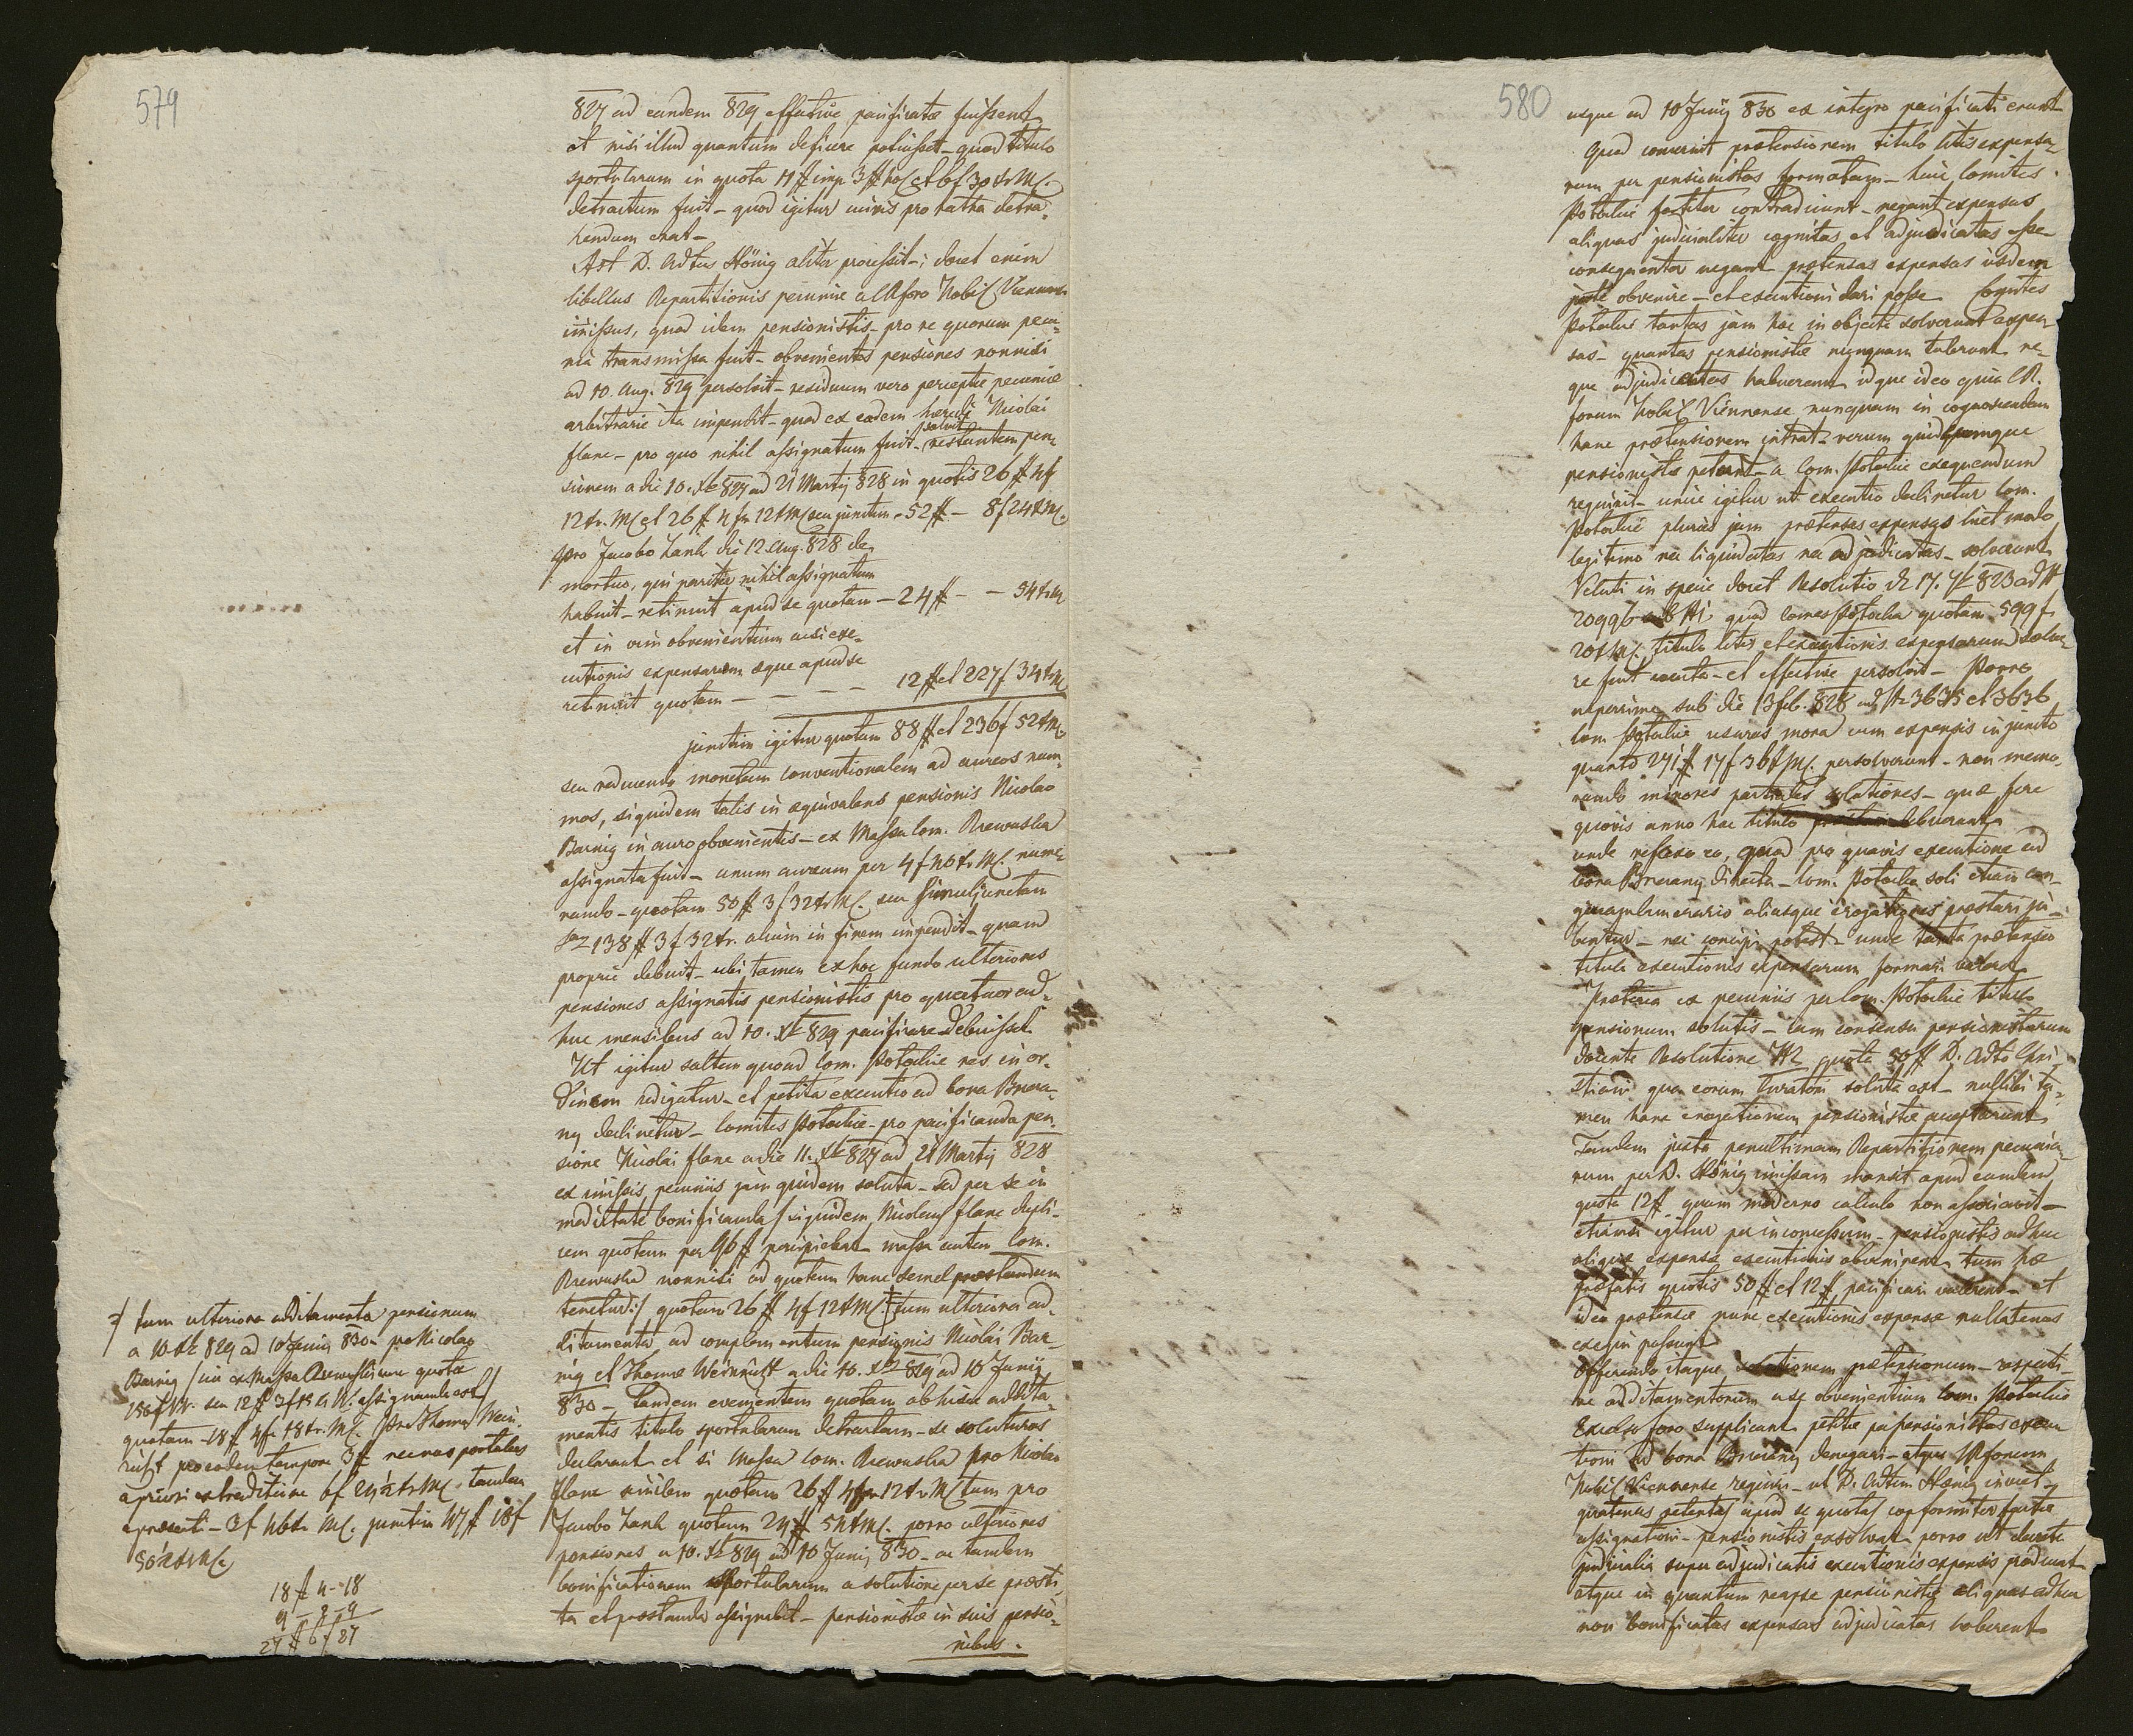 579
827 ad eandem 829 effective pacificatae fuissent
et nisi illud quantum deficere potuisset – quod titulo
sportularum in quota 11 # imp 3 # hol et 6 f 30 xr M.
detractum fuit – quod igitur cuivis pro ratha detra-
hendum erat –
Ast D. Adtus Hönig aliter processit –; docet enim
libellus Repartitionis pecuniae a CRforo Nobil Viennensi
immissus, quod idem pensionistis – pro re quorum pecu-
nia transmissa fuit – obvenientes pensiones nonnisi
ad 10. Aug. 829 persolvit – residuum vero perceptae pecuniae
arbitrarie ita impendit – quod ex eadem haeredi Nicolai
flane – pro quo nihil assignatum fuit – solvit restantem pen-
sionem a die 10. Xb 827 ad 21 Martij 828 in quotis 26 # 4 f
12 xr. M et 26 # 4 f 12 xr M seu junctim – 52 # – 8 f 24 xr M.
pro Jacobo Hank die 12. Aug. 828 de-
mortuo, qui pariter nihil assignatum
habuit – retinuit apud se quotam – 24 # – – 54 xr M
et in vim obvenientium exe-
cutionis expensarum aeque apud se
retinuit quotam – – – – 12 # et 227 f 34 xr M
junctim igitur quotam 88 # et 236 f 52 xr M.
seu reducendo monetam conventionalem ad aureos num-
mos, siquidem talis in aequivalens pensionis Nicolao
Barnig in auro obvenientis – ex Massa Com. Rzewuska
assignata fuit – unum aureum per 4 f 46 xr M. nume-
rando – quotam 50 # 3 f 32 xr M. seu simul junctam
138 # 3 f 32 xr. alium in finem impendit – quam
proprie debuit – ubi tamen ex hoc fundo ulteriores
pensiones assignatis pensionistis pro quatuor ad-
huc mensibus ad 10. Xb 829 pacificare debuisset.
Ut igitur saltem quoad Com. Potockie res in or-
dinem redigatur – et petita executio ad bona Brzeza-
ny declinetur – Comites Potockie – pro pacificanda pen-
sione Nicolai flane a die 11. Xb 827 ad 21 Martij 828
ex immissis pecuniis jam quidem soluta – sed per se in
medietate bonificanda / siquidem Nicolaus flane dupli-
cem quotam per 96 # percipiebat – massa autem Com.
Rzewuska nonnisi ad quotam hanc semel praestandam
tenetur / quotam 26 # 4 f 12 xr M. ≠ tum ulteriora ad-
ditamenta ad complementum pensionis Nicolai Bar-
nig et Thomae Weinrücht a die 10. Xb 829 ad 10 Junij
830 – tandem evenientem quotam ab hisce addita-
mentis titulo sportularum detractam – se soluturos
declarant et si Massa Com. Rzewuska pro Nicolao
flane similem quotam 26 # 4 f 12 xr. M tum pro
Jacobo Hank quotam 24 # 54 xr M. porro ulteriores
pensiones a 10. Xb 829 ad 10 Junij 830 – ac tandem
bonificationem sportularum a solutione per se praesti-
ta et praestanda assignabit – pensionistae in suis pensio-
nibus.
≠/ tum ulteriora additamenta pensionum
a 10 Xb 829 ad 10 Junij 830 – pro Nicolao
Barnig / cui ex Massa Rzewusciana quota
assignanda est /
quotam – 18 # 4 f 18 xr. M. pro Thoma Wein-
rücht pro eodem tempore 3 # nec non sportulas
a priori extraditione 6 f 24 ½ xr M – tandem
a praesenti – 3 f 46 xr M. junctim 47 # 18 f
50 ½ xr M
18 # 4 – 18
9 – 2 – 9
27 # 6 f 27
580
usque ad 10 Junij 830 ex integro pacificati erunt
Quod concernit praetensionem titulo litis expensa-
rum per pensionistas formatam – huic Comites
Potockie fortiter contradicunt – negant expensas
aliquas judicialiter cognitas et adjudicatas esse –
consequenter negant praetensas expensas iisdem
juste obvenire – et executioni dari posse – Comites
Potockie tantas jam hoc in objecto solverunt expen-
sas – quantas pensionistae nunquam tulerunt ne-
que adjudicatas habuerunt idque ideo quia CR.
forum Nobil Viennense nunquam in cognoscendam
hanc praetensionem intrat – verum quidquumque
pensionistae petunt – a Com. Potockie exequendum
requirit – unice igitur ut executio declinetur Com.
Potockie plures jam praetensas expensas licet modo
legitimo nec liquidatas nec adjudicatas – solverunt
Veluti in specie docet Resolutio dt 17. 7b 823 ad N
20996 sub N1 quod Comes Potocka quotam 599 f
20 xr M. titulo litis et executionis expensarum solve-
re fuit coacta – et effective persolvit – Porro
nuperrime sub die 13 feb. 828 ad N 3635 et 3636
Com. Potockie usuras mora cum expensis in juncto
quanto 241 # 17 f 36 xr M. persolverunt – non memo-
rando minores partiales solutiones – quae fere
quovis anno hoc titulo praestari debuerunt
unde refuso eo, quod pro quavis executione ad
bona Brzezany directa – Com. Potocka soli etiam con-
grua camerario aliasque erogationes praestari ju-
bentur – nec concipi potest – unde tanta praetensio
titulo executionis expensarum formari valeat
Praeterea ex pecuniis per Com. Potockie titulo
pensionum solutis – cum consensu pensionistarum
docente Resolutione N2 quota 50 # D. Adto Chri-
stiani qua eorum Curatori soluta est – nullibi ta-
men hanc erogationem pensionistae acceptarunt
Tandem juxta penultimam Repartitionem pecunia-
rum per D. Hönig immissam mansit apud eundem
quota 12 # quam moderno calculo non associavit –
etiamsi igitur per inconcessum – pensionistis adhuc
aliquae expensae executionis obvenirent – tum hae
praefatis quotis 50 # et 12 # pacificari valerent – et
ideo praetensae nunc executionis expensae nullatenus
exequi possunt
Offerendo itaque solutionem praetensionum – respecti-
ve additamentorum usq obvenientium Com. Potockie
Excelso foro supplicant petitae per pensionistas execu-
tioni ad bona Brzezany denegari – atque CRforum
Nobil Viennense requiri – ut D. Adtum Hönig inviet
quatenus retentas apud se quotas conformiter factae
assignationi – pensionistis exsolvat – porro ut decreta
judicialia super adjudicatis executionis expensis producat
atque in quantum reapse pensionistae aliquas adhuc
non bonificatas expensas adjudicatas haberent